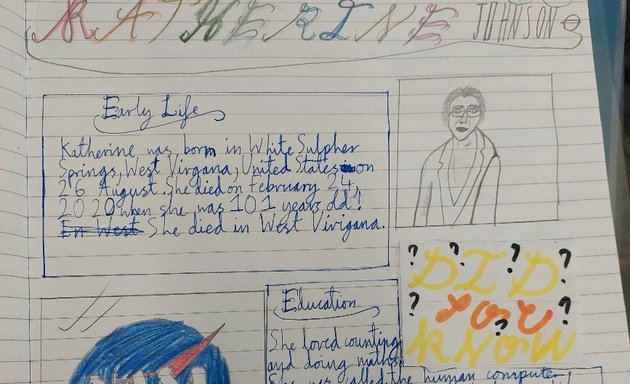 KATHERINE JOHNSON
Early Life
Katherine was born in White Sulpher
Springs, West Virgana, United States on
26 August. She died on February 24,
2020 when she was 101 years old!
En West She died in West Virigana.
? ? ? ?
DID
? YOU ?
?
KNOW
Education
She loved counting
and doing maths.
She was called the human computer